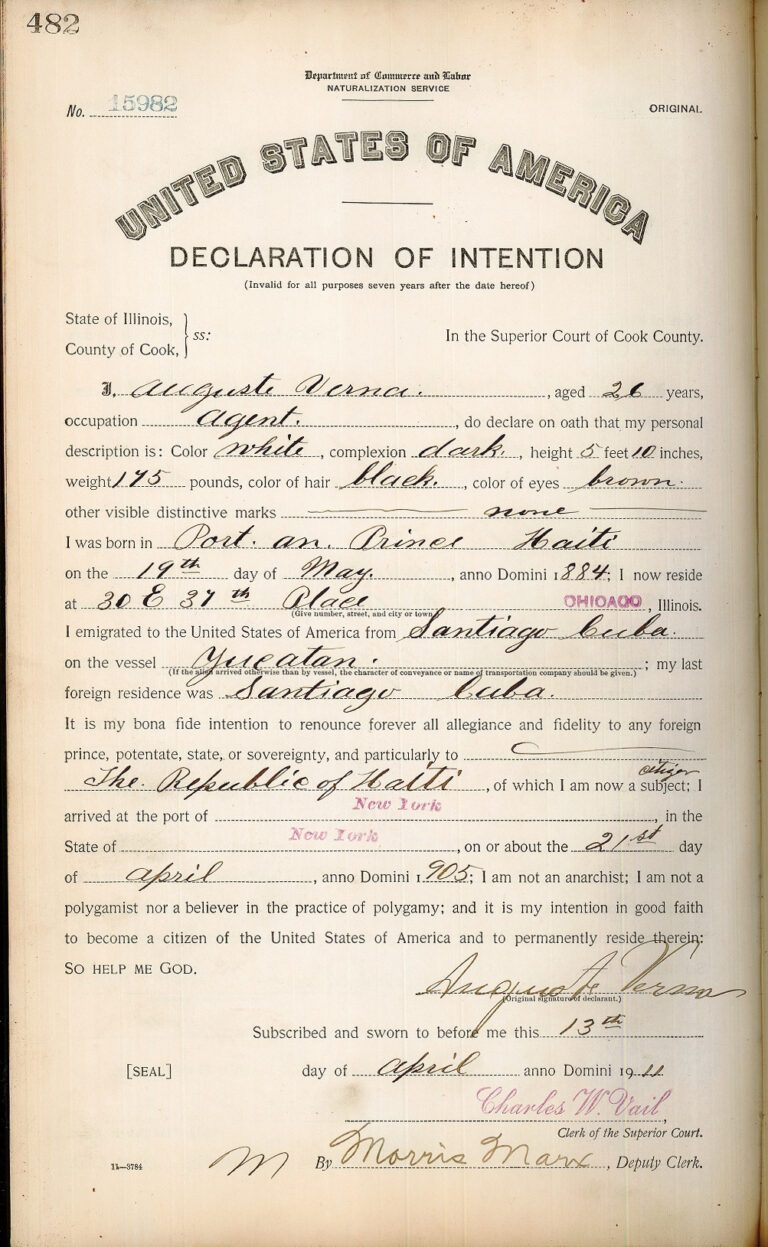 482
Department of Commerce and Labor
NATURALIZATION SERVICE
No. 15982
ORIGINAL
UNITED STATES OF AMERICA
DECLARATION OF INTENTION
(Invalid for all purposes seven years after the date hereof)
State of Illinois,
County of Cook, } ss:
In the Superior Court of Cook County.
I, Auguste Verna. , aged 26 years,
occupation agent. , do declare on oath that my personal
description is: Color white , complexion dark. , height 5 feet 10 inches,
weight 175 pounds, color of hair black. , color of eyes brown.
other visible distinctive marks none
I was born in Port. an. Prince Haiti
on the 19th day of May. , anno Domini 1884; I now reside
at 30 E 37th Place CHICAGO , Illinois.
(Give number, street, and city or town.)
I emigrated to the United States of America from Santiago Cuba.
on the vessel Yucatan. ; my last
(If the alien arrived otherwise than by vessel, the character of conveyance or name of transportation company should be given.)
foreign residence was Santiago Cuba.
It is my bona fide intention to renounce forever all allegiance and fidelity to any foreign
prince, potentate, state, or sovereignty, and particularly to
citizen
The. Republic of Haiti , of which I am now a subject; I
arrived at the port of New York , in the
State of New York , on or about the 21st day
of april , anno Domini 1905; I am not an anarchist; I am not a
polygamist nor a believer in the practice of polygamy; and it is my intention in good faith
to become a citizen of the United States of America and to permanently reside therein:
SO HELP ME GOD.
Auguste Verna
(Original signature of declarant.)
Subscribed and sworn to before me this 13th
[SEAL] day of april anno Domini 1911
Charles W. Vail,
Clerk of the Superior Court.
11—3784 M By Morris Marx , Deputy Clerk.